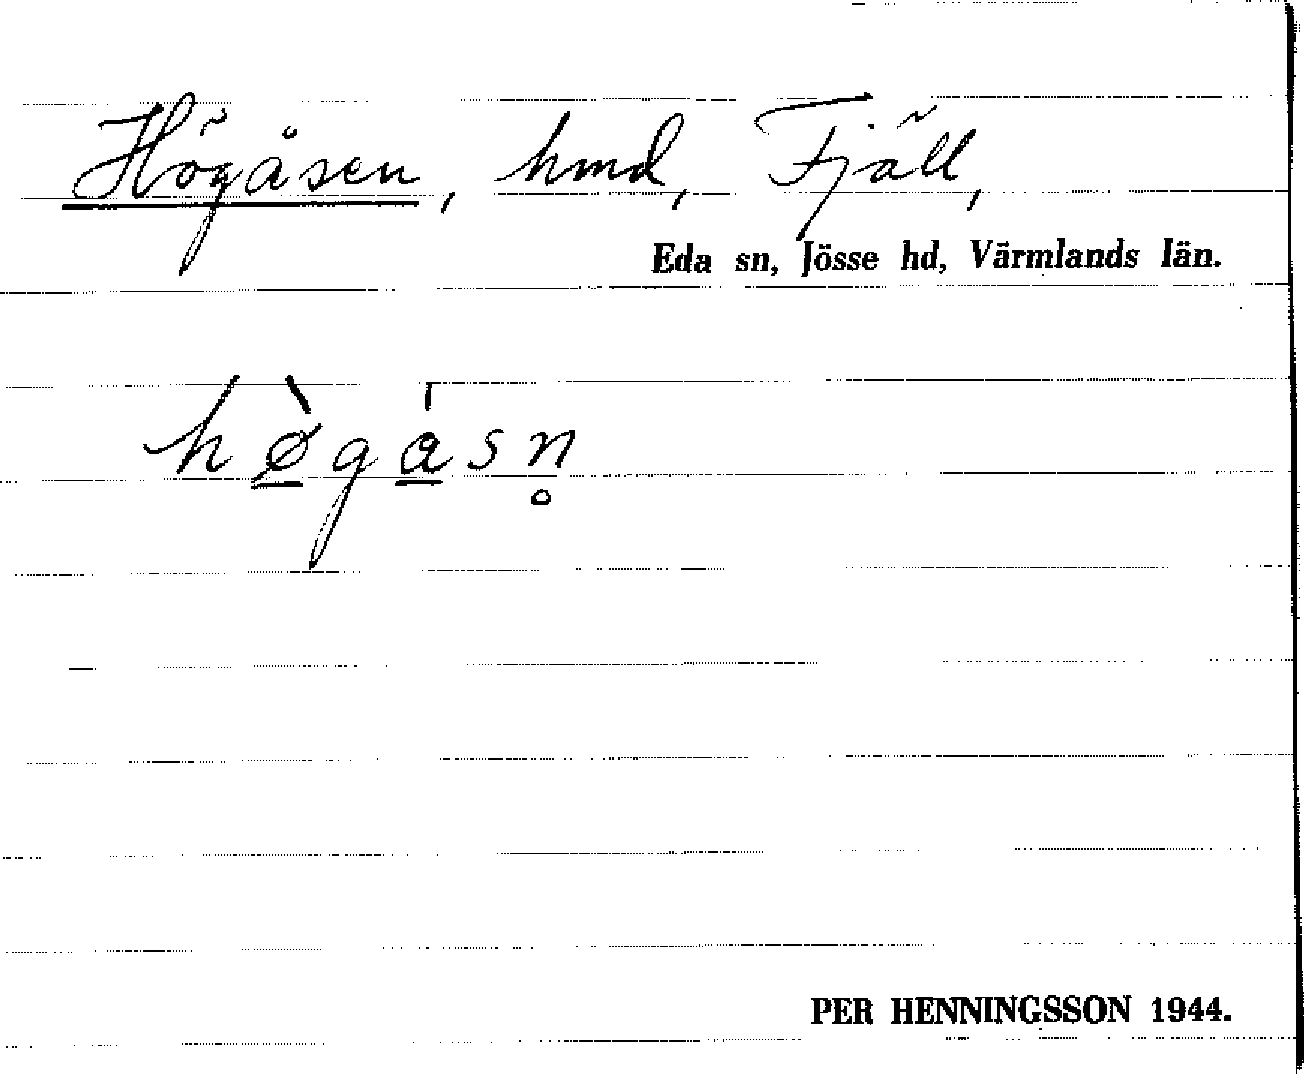 Högåsen, hmd, Fjäll,
Eda sn, Jösse hd, Värmlands län.
hø̀gasn̥
PER HENNINGSSON 1944.